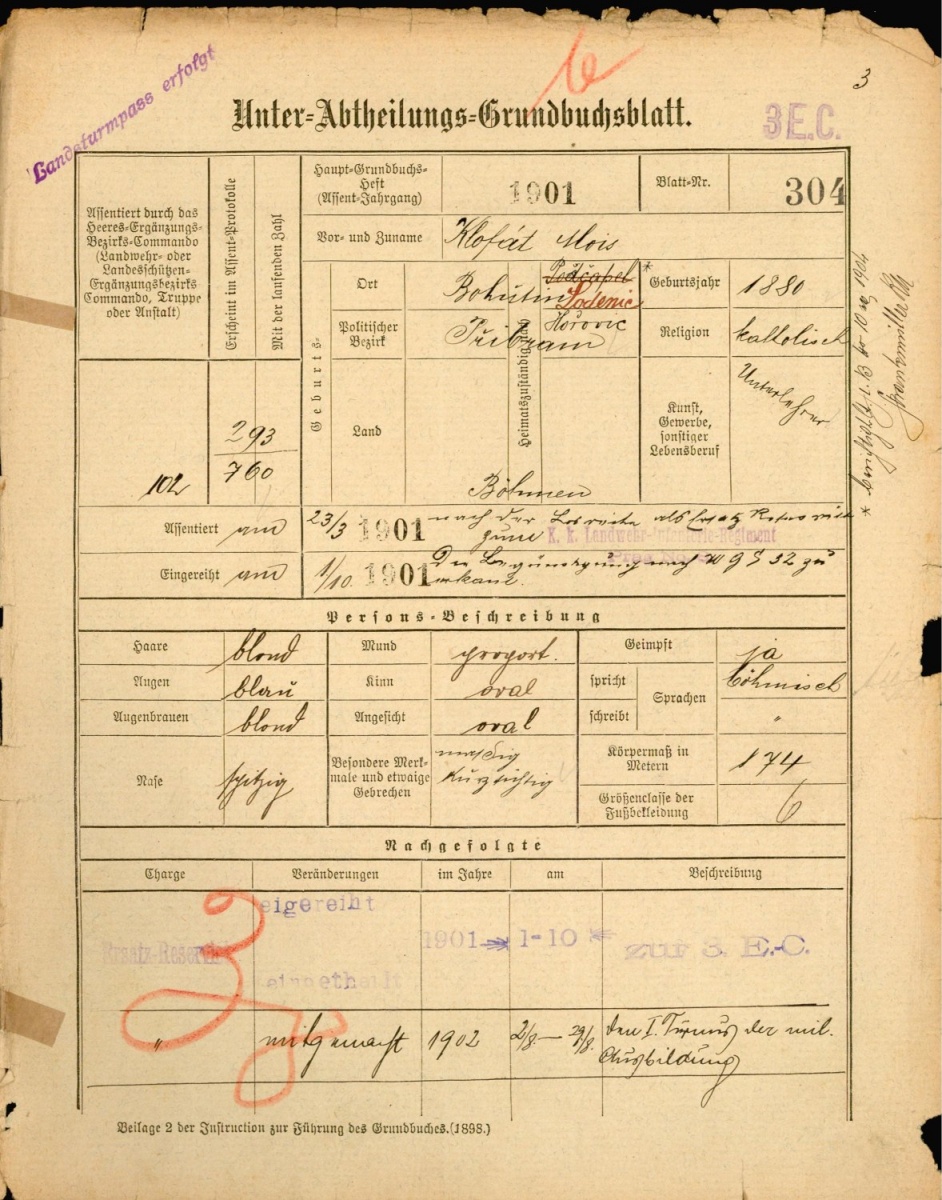 3
Landsturmpass erfolgt
Unter-Abtheilungs-Grundbuchsblatt.
3 E.C.
Assentiert durch das
Heeres-Ergänzungs-
Bezirks-Commando
(Landwehr- oder
Landesschützen-
Ergänzungsbezirks
Commando, Truppe
oder Anstalt)
102
Erscheint im Assent-Protokolle
Mit der laufenden Zahl
293
760
Haupt-Grundbuchs-
Heft
(Assent-Jahrgang)
1901
Blatt-Nr.
304
Vor- und Zuname
Klofát Alois
Geburts-
Ort
Bohutin
Heimatszuständigkeit
Podčapel
Lodenic
Hořovic
Politischer
Bezirk
Přibram
Land
Böhmen
* Geburtsjahr
1880
Religion
katholisch
Kunst,
Gewerbe,
sonstiger
Lebensberuf
Unterlehrer
Assentiert am
23/3 1901 nach der Losreihe als Ersatz Reservist
zum K. k. Landwehr-Infanterie-Regiment
Eingereiht am
1/10. 1901 Die Begünstigung nach W G § 32 zu
erkant.
Persons-Beschreibung
Haare
blond
Mund
proport.
Geimpft
ja
Augen
blau
Kinn
oval
spricht
Sprachen
böhmisch
Augenbrauen
blond
Angesicht
oval
schreibt
"
Nase
spitzig
Besondere Merk-
male und etwaige
Gebrechen
mässig
kurzsichtig
Körpermaß in
Metern
174
Größenclasse der
Fußbekleidung
6
Nachgefolgte
Charge
Veränderungen
im Jahre
am
Beschreibung
Ersatz-Reservist
eigereiht
eingetheilt
1901
1-10
zur 3. E.-C.
"
mitgemacht
1902
2/8. — 29/8.
den I. Turnus der mil.
Ausbildung
Beilage 2 der Instruction zur Führung des Grundbuches. (1898.)